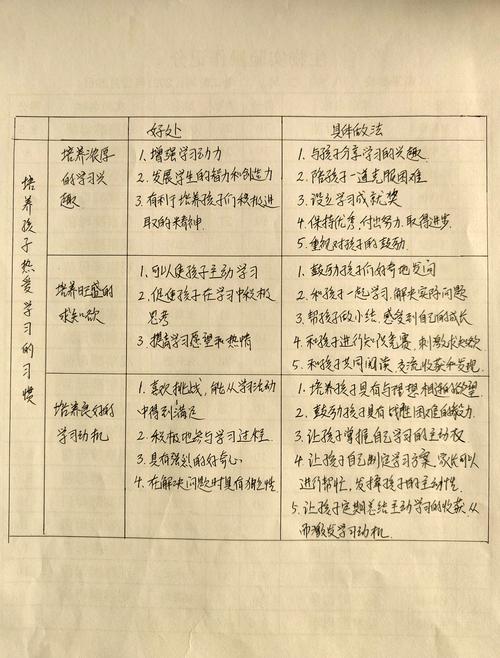 好处 具体做法
培养孩子热爱学习的习惯
培养浓厚
的学习兴
趣
1. 增强学习动力
2. 发展学生的智力和创造力
3. 有利于培养孩子们积极进
取的精神.
1. 与孩子分享学习的兴趣.
2. 陪孩子一道克服困难
3. 设立学习成就奖
4. 保持优秀, 付出努力, 取得进步.
5. 重视对孩子的鼓励.
培养旺盛的
求知欲
1. 可以使孩子主动学习
2. 促使孩子在学习中积极
思考
3. 提高学习愿望和热情
1. 鼓励孩子们好奇地发问
2. 和孩子一起学习, 解决实际问题
3. 帮孩子做小结, 感受到自己的成长
4. 和孩子进行知识竞赛, 刺激求知欲
5. 和孩子共同阅读, 交流收获和发现.
培养良好的
学习动机
1. 喜欢挑战, 能从学习活动
中得到满足
2. 积极地参与学习过程
3. 具有强烈的好奇心
4. 在解决问题时具有独立性
1. 培养孩子具有与理想相称的欲望.
2. 鼓励孩子具有战胜困难的毅力.
3. 让孩子掌握自己学习的主动权
4. 让孩子自己制定学习方案, 家长可以
进行帮忙, 发挥孩子的主动性
5. 让孩子定期总结主动学习的收获, 从
而激发学习动机.